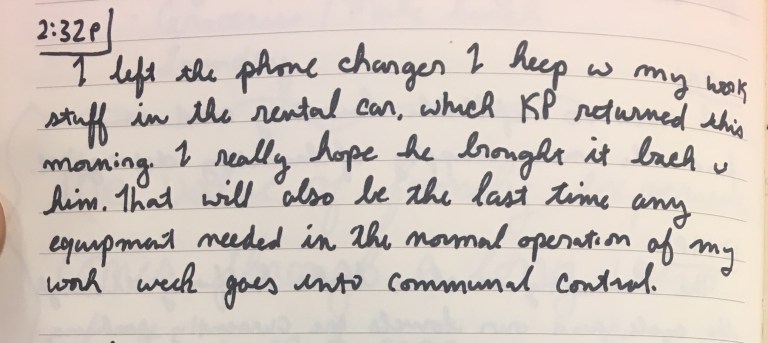 2:32P
I left the phone charger I keep w my work
stuff in the rental car, which KP returned this
morning. I really hope he brought it back w
him. That will also be the last time any
equipment needed in the normal operation of my
work week goes into communal control.